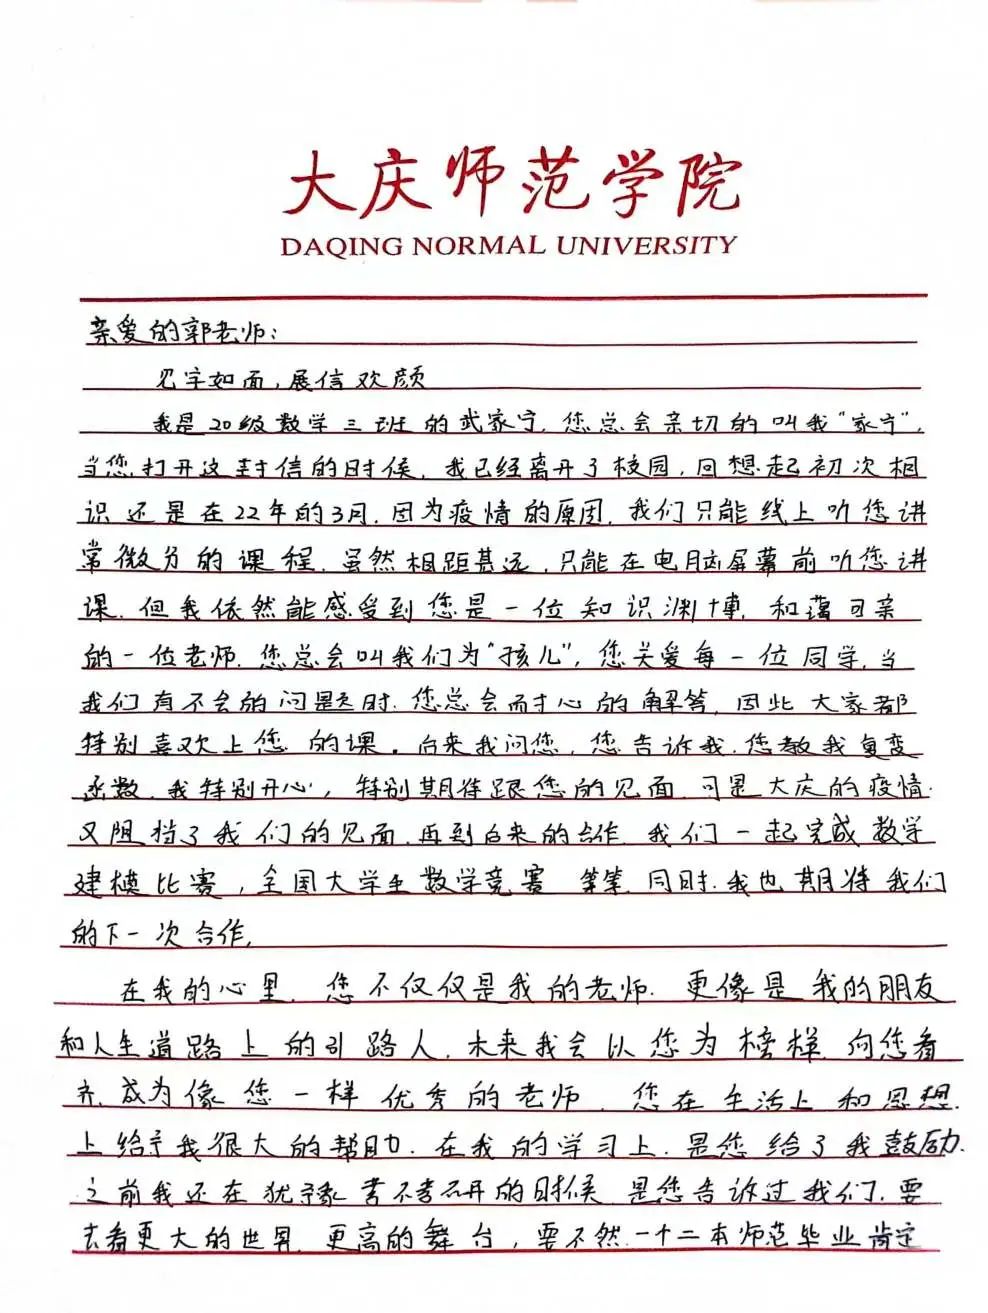 大庆师范学院
DAQING NORMAL UNIVERSITY
亲爱的郭老师：
见字如面，展信欢颜
我是20级数学三班的武家宁，您总会亲切的叫我“家宁”，
当您打开这封信的时候，我已经离开了校园，回想起初次相
识还是在22年的3月，因为疫情的原因，我们只能线上听您讲
常微分的课程，虽然相距甚远，只能在电脑屏幕前听您讲
课，但我依然能感受到您是一位知识渊博，和蔼可亲
的一位老师，您总会叫我们为“孩儿”，您关爱每一位同学，当
我们有不会的问题时，您总会耐心的解答，因此大家都
特别喜欢上您的课。后来我问您，您告诉我，您教我复变
函数，我特别开心，特别期待跟您的见面，可是大庆的疫情
又阻挡了我们的见面，再到后来的合作，我们一起完成数学
建模比赛，全国大学生数学竞赛 等等，同时，我也期待我们
的下一次合作，
在我的心里，您不仅仅是我的老师，更像是我的朋友
和人生道路上的引路人，未来我会以您为榜样，向您看
齐，成为像您一样优秀的老师，您在生活上和思想
上给予我很大的帮助，在我的学习上，是您给了我鼓励，
之前我还在犹豫考不考研的时候，是您告诉过我们，要
去看更大的世界，更高的舞台，要不然，一个二本师范毕业肯定